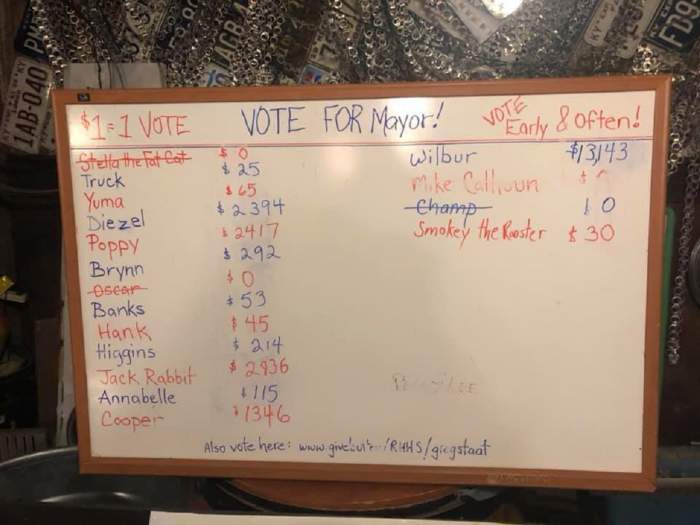 $1 = 1 VOTE
VOTE FOR Mayor!
VOTE
Early & Often!
Stella the Fat Cat $ 0
Truck $ 25
Yuma $ 65
Diezel $ 2394
Poppy $ 2417
Brynn $ 292
Oscar $ 0
Banks $ 53
Hank $ 45
Higgins $ 214
Jack Rabbit $ 2936
Annabelle $ 115
Cooper $ 1346
Wilbur $13,143
Mike Calhoun $
Champ $ 0
Smokey the Rooster $ 30
Also vote here: /RHHS/gregstaat
1AB·040